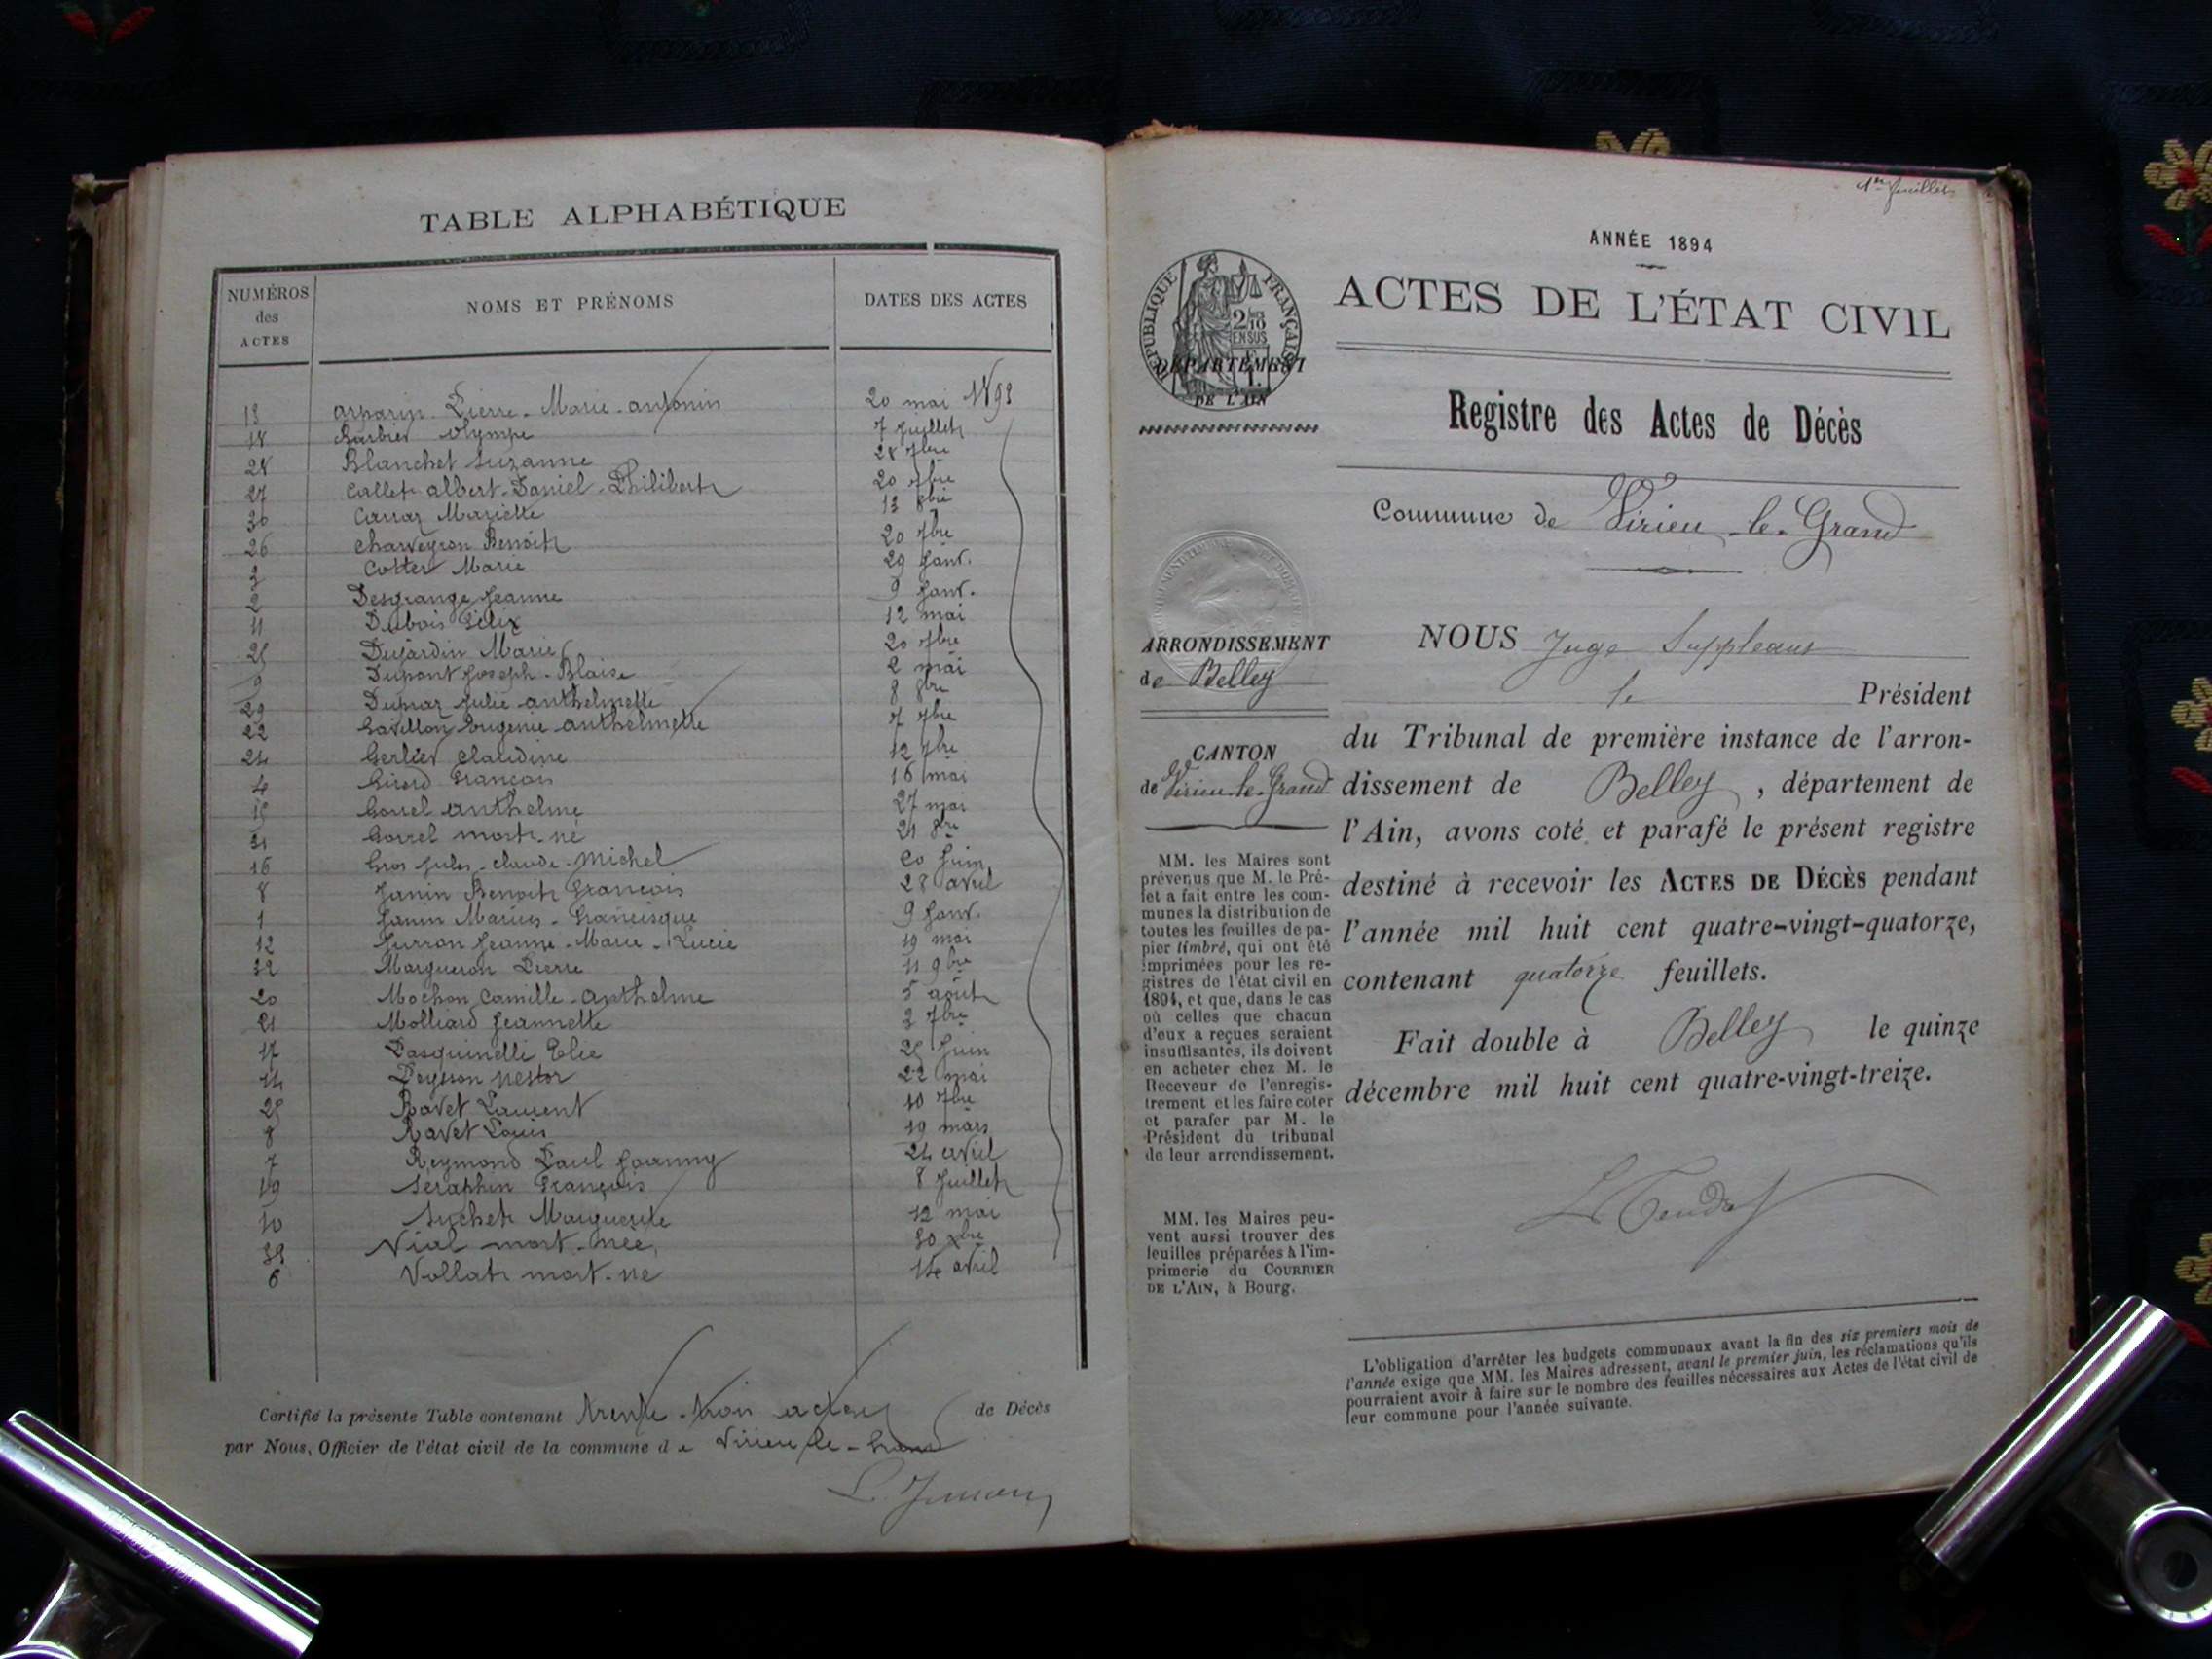 TABLE ALPHABÉTIQUE
NUMÉROS des ACTES
NOMS ET PRÉNOMS
DATES DES ACTES
13 Pierre-Marie-antonin 20 mai 1893
18 Barbier olympe 7 Juillet
28 Blanchet Suzanne 28 7bre
27 Callet albert-Daniel-Philibert 20 7bre
30 Carraz Mariette 13 8bre
26 Charveyron Benoit 20 7bre
3 Cottet Marie 29 Janv.
2 Desgrange Jeanne 9 Janv.
11 Dubois Félix 12 mai
25 Dujardin Marie 20 7bre
9 Dupont Joseph-Blaise 2 mai
29 Dupraz Julie anthelmette 8 8bre
22 Gavillon Eugenie anthelmette 7 7bre
24 Gerlier Claudine 12 7bre
4 Girord François 16 mai
15 Gorrel anthelme 27 mai
31 Gorrel mort-né 21 8bre
16 Gros Jules-Claude-Michel 20 Juin
8 Janin Benoit François 28 avril
1 Janin Marius-Francisque 9 Janv.
12 Jurron Jeanne-Marie-Lucie 19 mai
32 Margueron Pierre 11 9bre
20 Mochon Camille-anthelme 5 août
21 Molliard Jeannette 3 7bre
17 Pasquinelli Elie 25 Juin
14 Peysson Nestor 22 mai
25 Ravet Laurent 10 7bre
8 Ravet Louis 19 mars
7 Reymond Paul Joanny 24 avril
19 Séraphin François 8 Juillet
10 Suchet Marguerite 12 mai
33 Vial mort-née, 30 xbre
6 Vollat mort-né 14 avril
Certifié la présente Table contenant trente-trois actes de Décès
par Nous, Officier de l'état civil de la commune de Virieu-le-Grand
1er feuillet
ANNÉE 1894
ACTES DE L'ÉTAT CIVIL
RÉPUBLIQUE FRANÇAISE
2/10 EN SUS
DÉPARTEMENT
DE L'AIN
Registre des Actes de Décès
Commune de Virieu-le-Grand
ARRONDISSEMENT
de Belley
CANTON
de Virieu-le-Grand
MM. les Maires sont
prévenus que M. le Pré-
fet a fait entre les com-
munes la distribution de
toutes les feuilles de pa-
pier timbré, qui ont été
imprimées pour les re-
gistres de l'état civil en
1894, et que, dans le cas
où celles que chacun
d'eux a reçues seraient
insuffisantes, ils doivent
en acheter chez M. le
Receveur de l'enregis-
trement et les faire coter
et parafer par M. le
Président du tribunal
de leur arrondissement.
MM. les Maires peu-
vent aussi trouver des
feuilles préparées à l'im-
primerie du COURRIER
DE L'AIN, à Bourg.
NOUS Juge Suppléant
le Président
du Tribunal de première instance de l'arron-
dissement de Belley, département de
l'Ain, avons coté et parafé le présent registre
destiné à recevoir les ACTES DE DÉCÈS pendant
l'année mil huit cent quatre-vingt-quatorze,
contenant quatorze feuillets.
Fait double à Belley le quinze
décembre mil huit cent quatre-vingt-treize.
L'obligation d'arrêter les budgets communaux avant la fin des six premiers mois de
l'année exige que MM. les Maires adressent, avant le premier juin, les réclamations qu'ils
pourraient avoir à faire sur le nombre des feuilles nécessaires aux Actes de l'état civil de
leur commune pour l'année suivante.